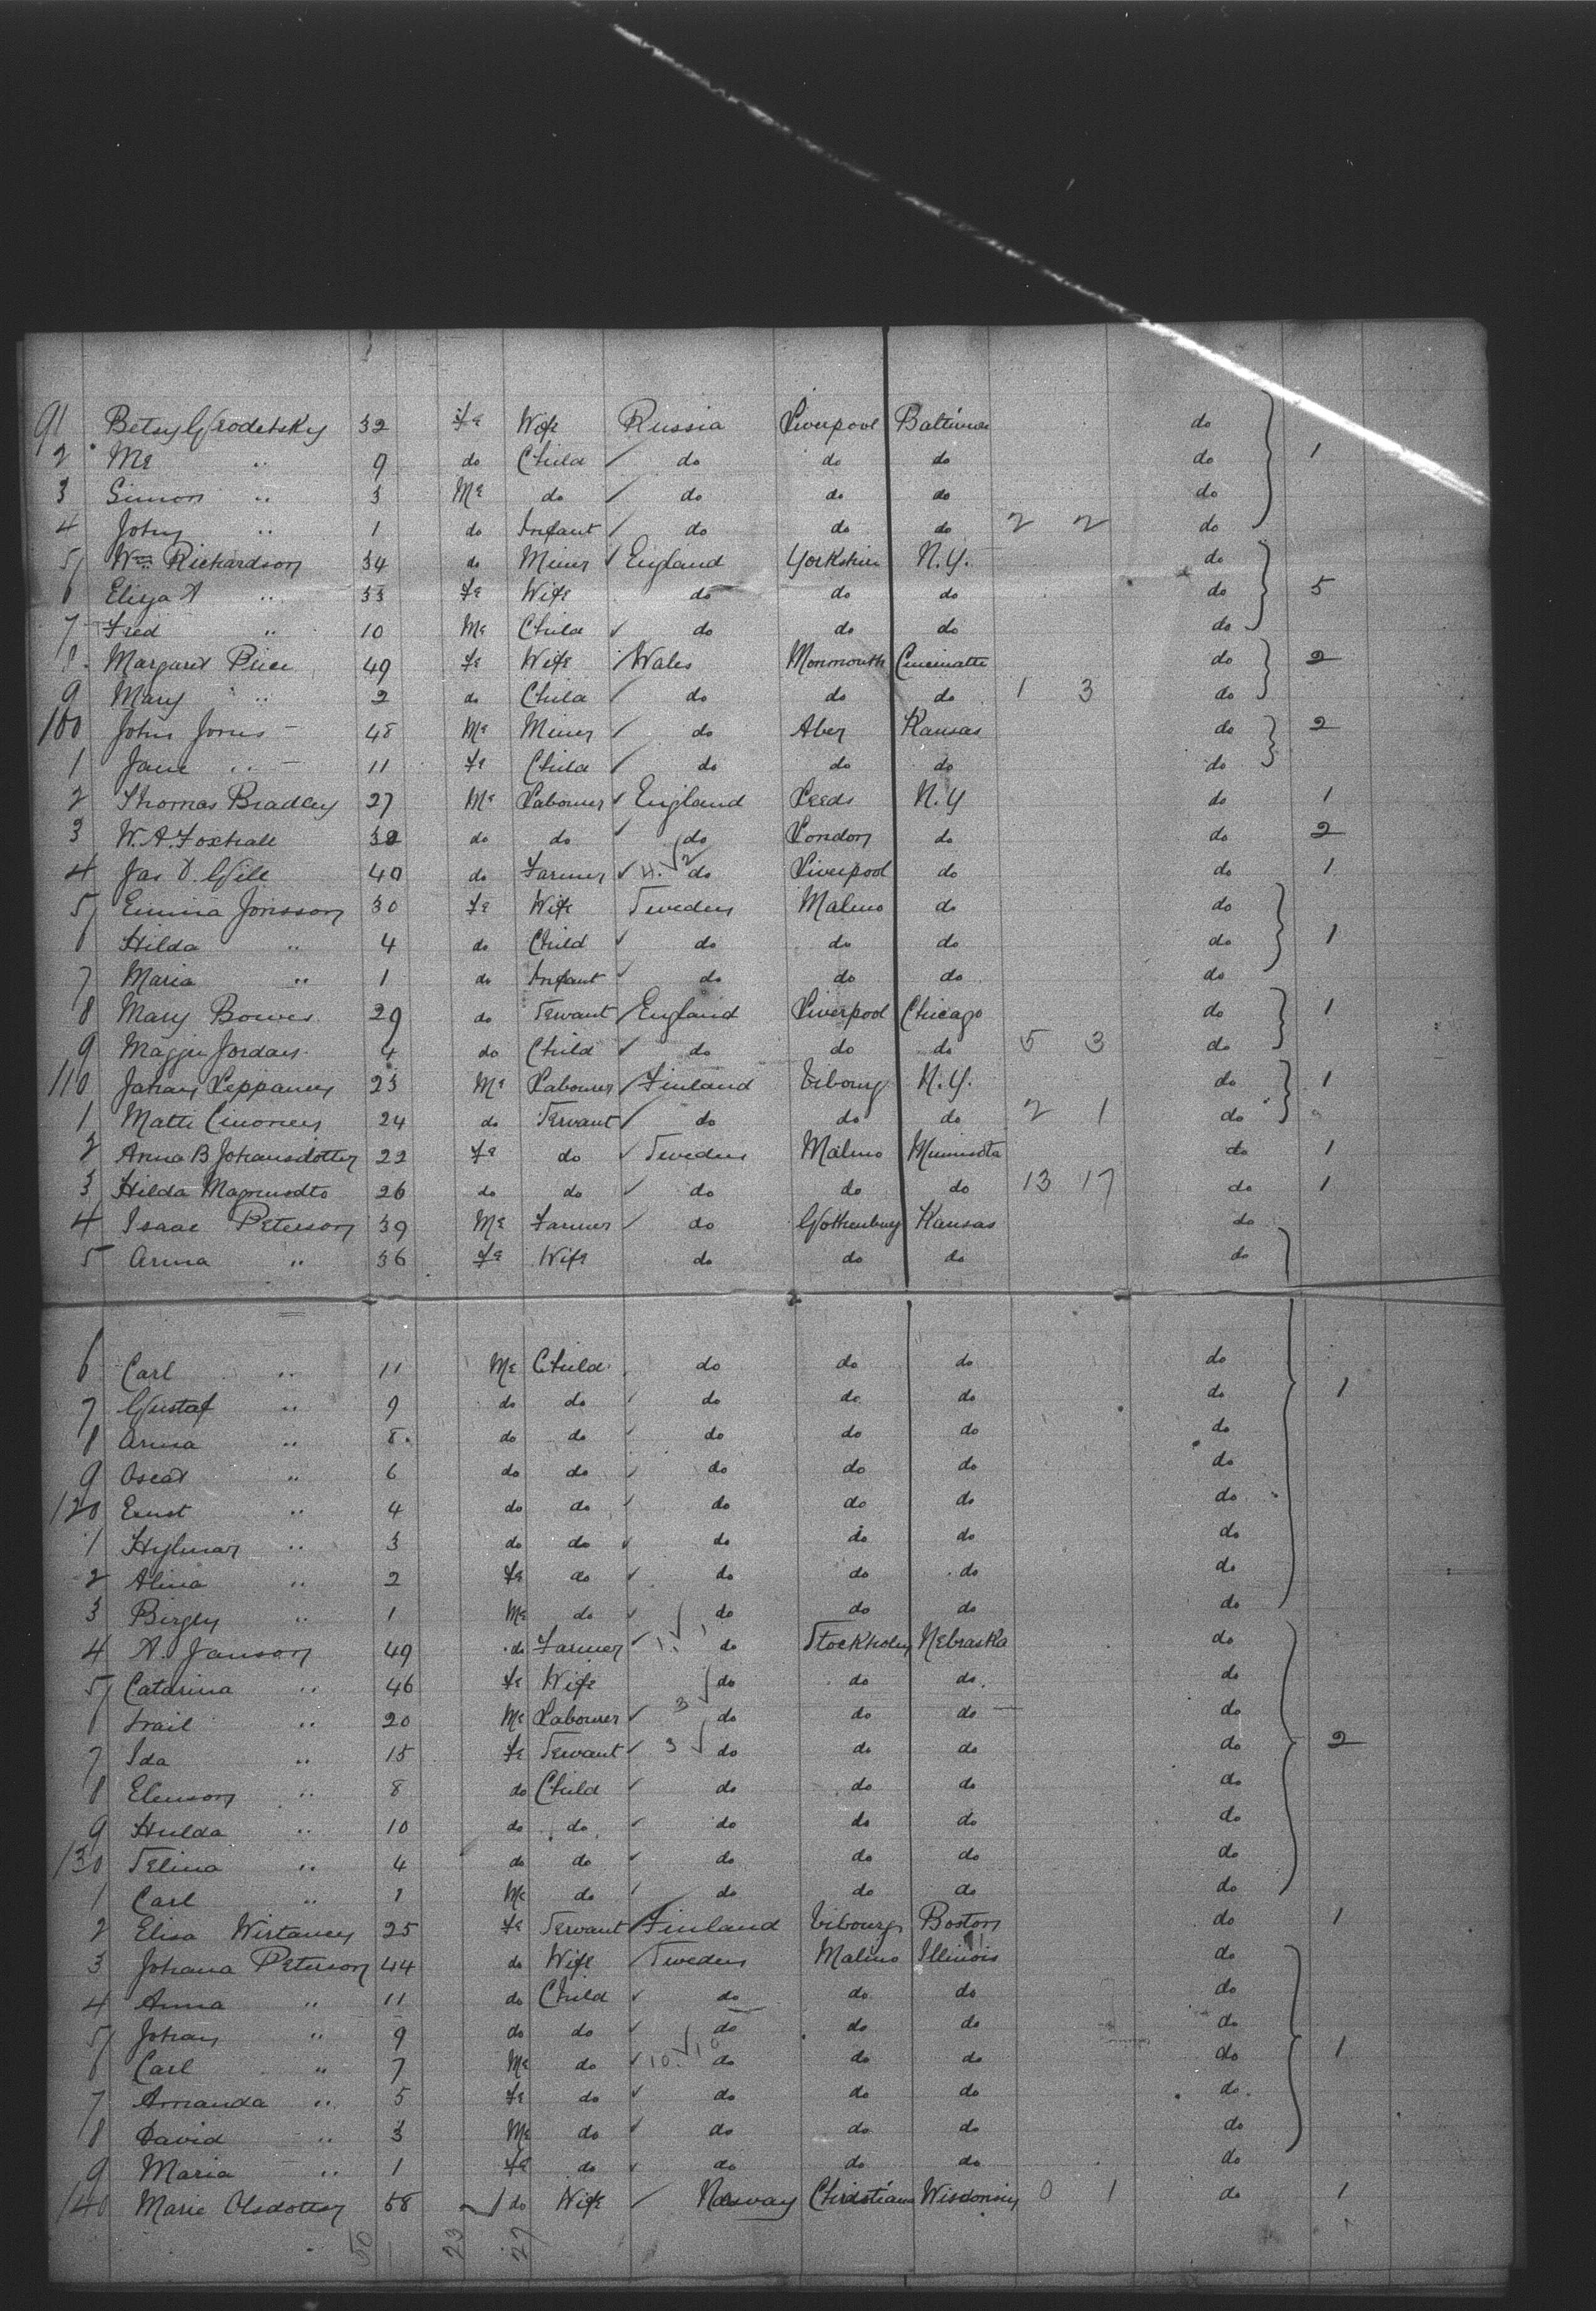 91 Betsy Grodetsky 32 Fe Wife Russia Liverpool Baltimore do
2 Me " 9 do Child ✓ do do do do 1
3 Simon " 3 Me do ✓ do do do do
4 John " 1 do Infant ✓ do do do 2 2 do
5 Wm Richardson 34 do Miner ✓ England Yorkshire N.Y. do
6 Eliza A " 33 Fe Wife do do do do 5
7 Fred " 10 Me Child ✓ do do do do
8 Margaret Price 49 Fe Wife Wales Monmouth Cincinatti do 2
9 Mary " 2 do Child ✓ do do do 1 3 do
100 John Jones 48 Me Miner ✓ do Aber Kansas do 2
1 Jane " 11 Fe Child ✓ do do do do
2 Thomas Bradley 27 Me Labourer ✓ England Leeds N.Y do 1
3 W. A. Foxhall do do ✓ do London do do 2
4 Jas D. Gill 40 do Farmer ✓ 4. ✓ 2 do Liverpool do do 1
5 Emma Jonsson 30 Fe Wife Sweden Malmo do do
6 Hilda " 4 do Child ✓ do do do do 1
7 Maria " 1 do Infant ✓ do do do do
8 Mary Bowes 29 do Servant England Liverpool Chicago do 1
9 Maggie Jordan 4 do Child ✓ do do do 5 3 do
110 Johan Leppanen 23 Me Labourer Finland Vibourg N.Y. do 1
1 Matti 24 do Servant ✓ do do do 2 1 do
2 Anna B Johansdotter 22 Fe do ✓ Sweden Malmo Minnisota do 1
3 Hilda Magnusdto 26 do do ✓ do do do 13 17 do 1
4 Isaac Peterson 39 Me Farmer ✓ do Gothenburg Kansas do
5 Anna " 36 Fe Wife do do do do
6 Carl " 11 Me Child do do do do
7 Gustaf " 9 do do ✓ do do do do 1
8 Anna " 8 do do ✓ do do do do
9 Oscar " 6 do do ✓ do do do do
120 Ernst " 4 do do ✓ do do do do
1 Hylmar " 3 do do ✓ do do do do
2 Alina " 2 Fe do ✓ do do do do
3 " 1 Me do ✓ do do do do
4 A. Janson 49 do Farmer ✓ 1. ✓ 1 do Stockholm Nebraska do
5 Catarina " 46 Fe Wife do do do do
6 " 20 Me Labourer ✓ 3 ✓ do do do do
7 Ida " 15 Fe Servant ✓ 3 ✓ do do do do 2
8 Elenson " 8 do Child ✓ do do do do
9 Hulda " 10 do do ✓ do do do do
130 Selina " 4 do do ✓ do do do do
1 Carl " 1 Me do ✓ do do do do
2 Elisa Wirtanen 25 Fe Servant Finland Vibourg Boston do 1
3 Johana Peterson 44 do Wife Sweden Malmo Illinois do
4 Anna " 11 do Child ✓ do do do do
5 Johan " 9 do do ✓ do do do do
6 Carl " 7 Me do ✓ 10. ✓ 10 do do do do 1
7 Amanda " 5 Fe do ✓ do do do do
8 David " 3 Me do ✓ do do do do
9 Maria " 1 Fe do ✓ do do do do
140 Marie Olsdotter 58 do Wife ✓ Norway Christiana Wisconsin 0 1 do 1
50 23 27